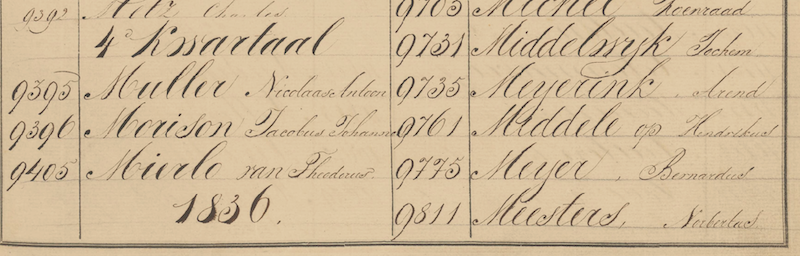 9392 Metz Charles
4e Kwartaal
9395 Muller Nicolaas Antoon
9396 Morison Jacobus Johann
9405 Mierlo van Theodorus
1836.
9705 Michel Koenraad
9731 Middelwyk Jochem
9735 Meyerink, Arend
9761 Middele op Hendrikus
9775 Meyer, Bernardus
9811 Meesters, Norbertus